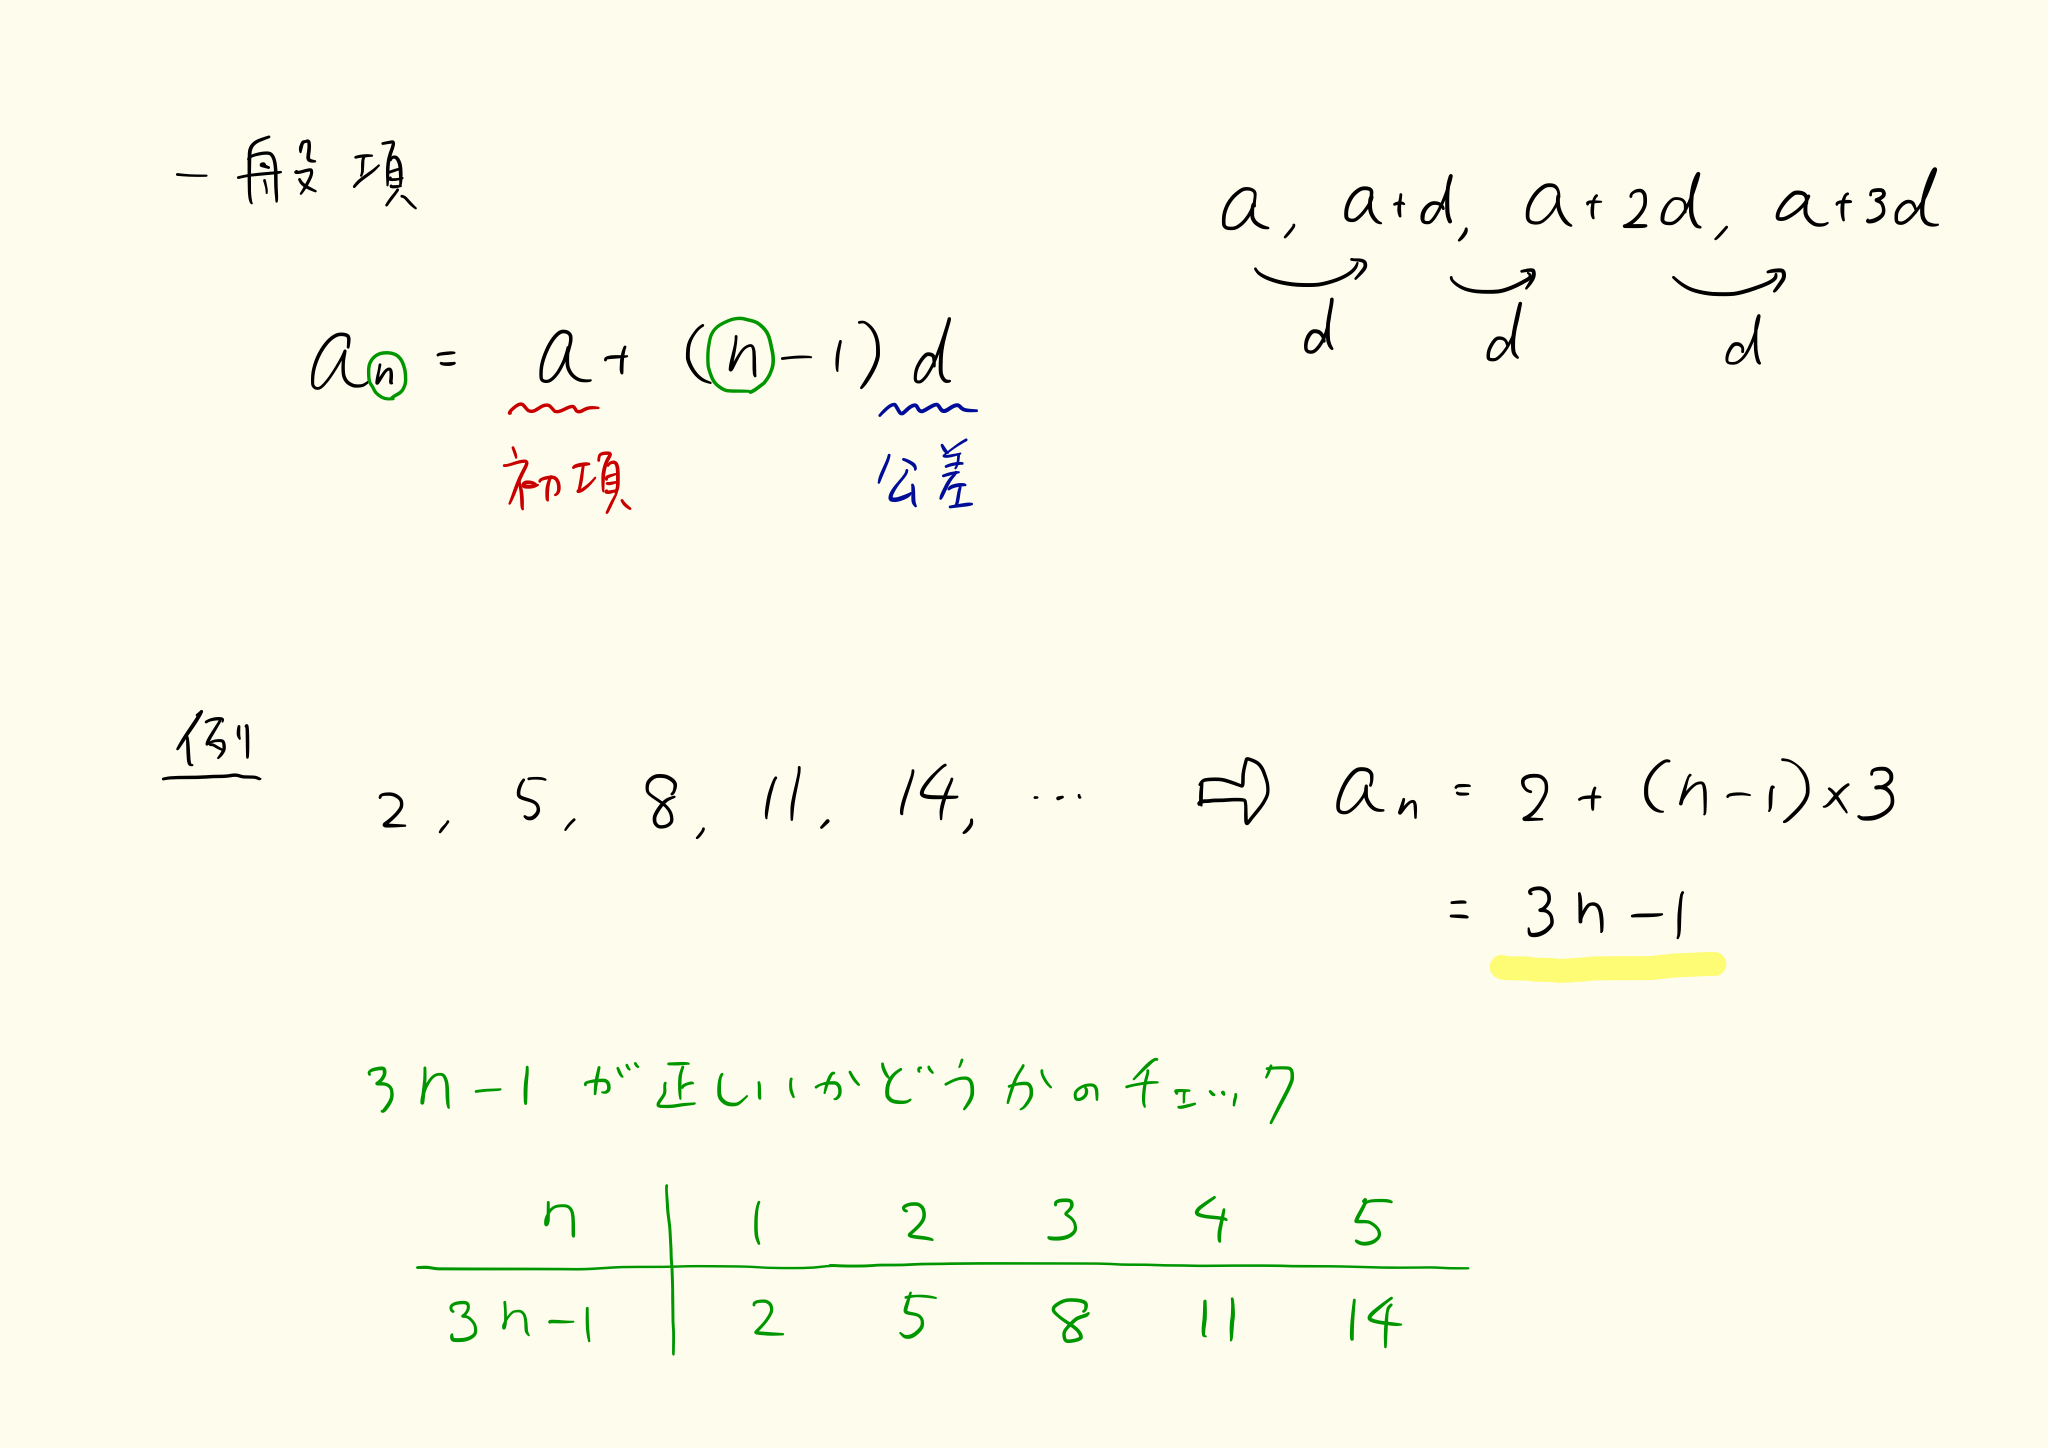 一般項
a, a+d, a+2d, a+3d
d d d
aₙ = a + (n-1)d
初項 公差
例
2, 5, 8, 11, 14, … ⇨ aₙ = 2 + (n-1)×3
= 3n-1
3n-1 が正しいかどうかのチェック
n 1 2 3 4 5
3n-1 2 5 8 11 14